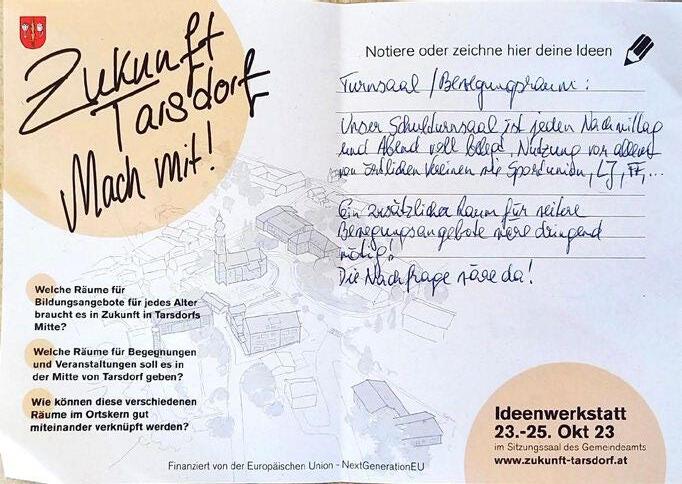 Zukunft
Tarsdorf
Mach mit!
Welche Räume für
Bildungsangebote für jedes Alter
braucht es in Zukunft in Tarsdorfs
Mitte?
Welche Räume für Begegnungen
und Veranstaltungen soll es in
der Mitte von Tarsdorf geben?
Wie können diese verschiedenen
Räume im Ortskern gut
miteinander verknüpft werden?
Notiere oder zeichne hier deine Ideen
Turnsaal / Bewegungsraum:
Unser Schulturnsaal ist jeden Nachmittag
und Abend voll belegt, Nutzung vor allem
von örtlichen Vereinen wie Sportunion, LJ, FF, ...
Ein zusätzlicher Raum für weitere
Bewegungsangebote wäre dringend
nötig!
Die Nachfrage wäre da!
Ideenwerkstatt
23.-25. Okt 23
im Sitzungssaal des Gemeindeamts
www.zukunft-tarsdorf.at
Finanziert von der Europäischen Union - NextGenerationEU